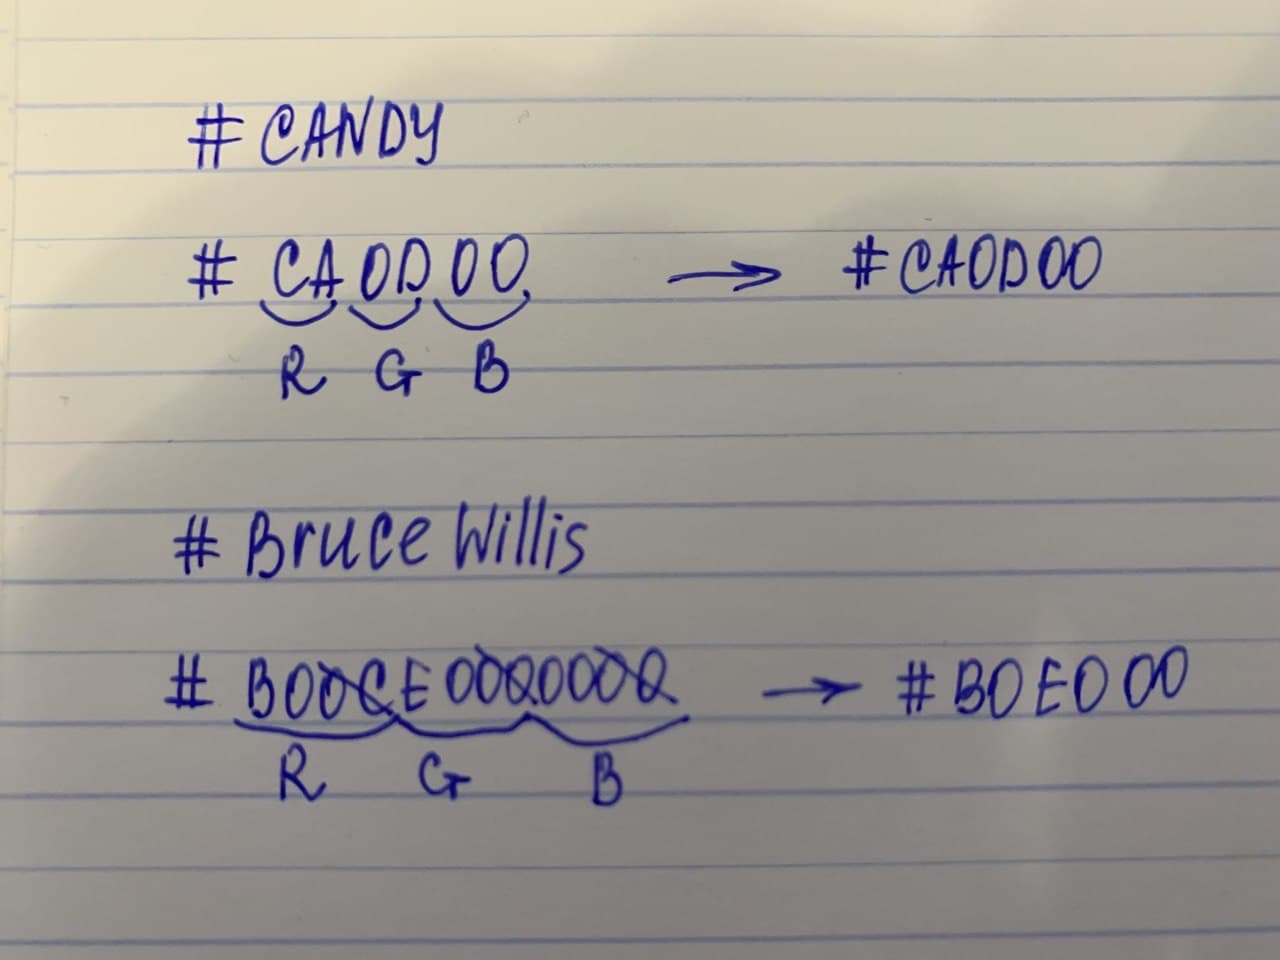 # CANDY
# CA0D00 → #CA0D00
R G B
# Bruce Willis
# B00CE0000000 → #B0E000
R G B